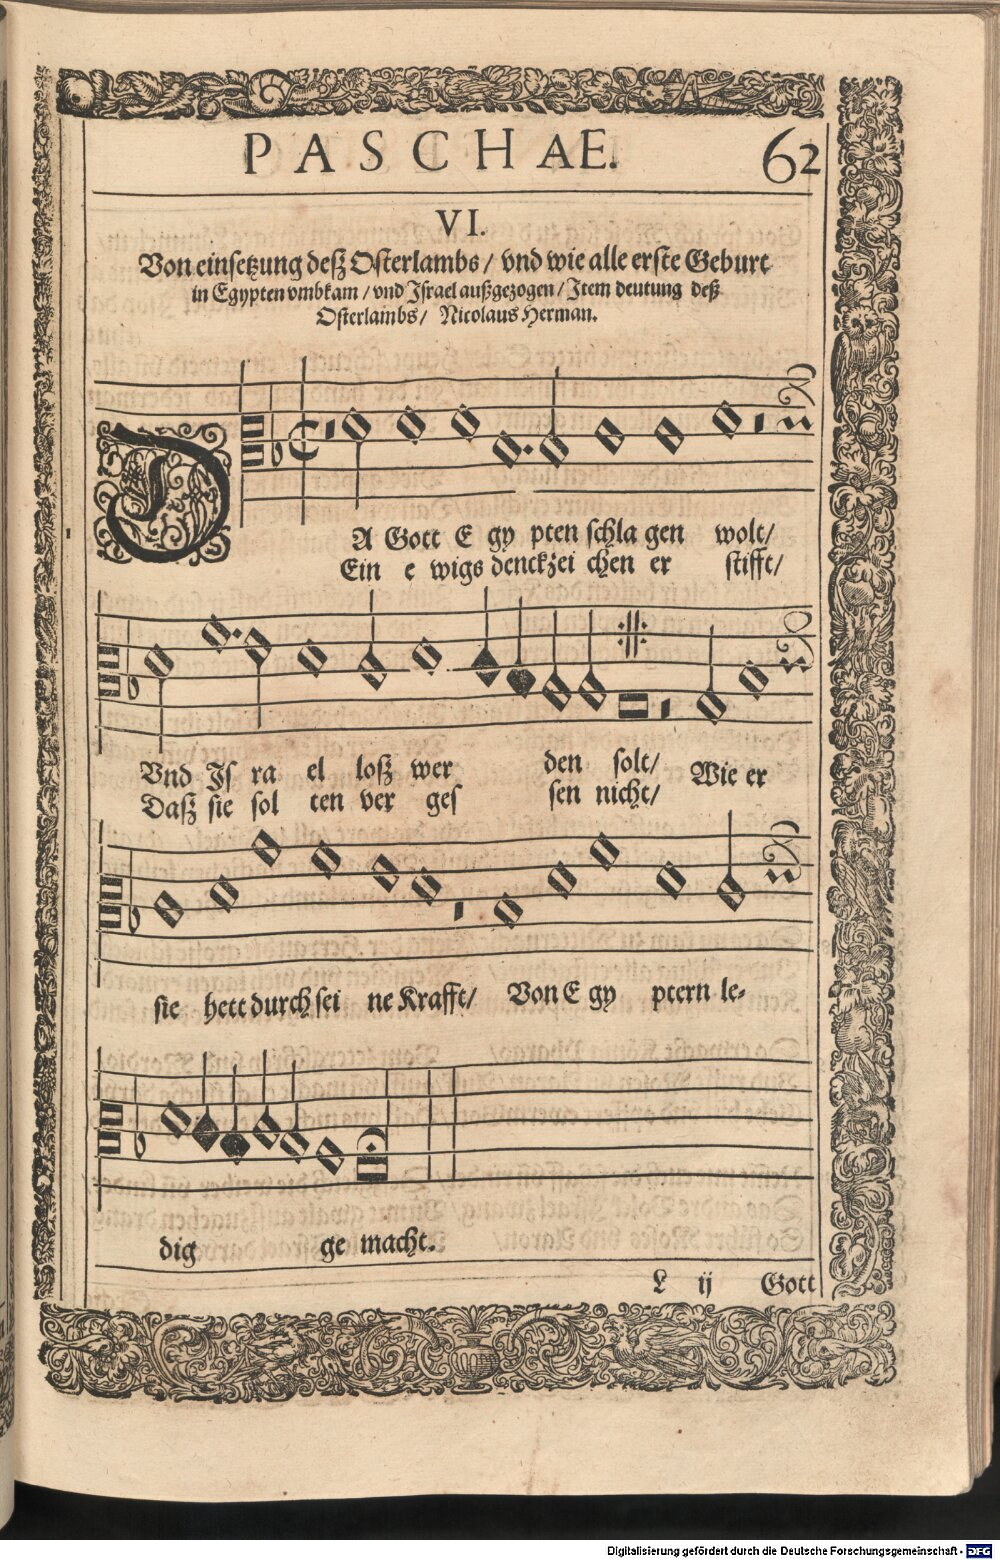 PASCHAE. 62
VI.
Von einsetzung deß Osterlambs / vnd wie alle erste Geburt
in Egypten vmbkam / vnd Israel außgezogen / Item deutung deß
Osterlambs / Nicolaus Herman.
DA Gott E gy pten schla gen wolt /
Ein e wigs denckzei chen er stifft /
Vnd Is ra el loß wer den solt / Wie er
Daß sie sol ten ver ges sen nicht /
sie hett durch sei ne Krafft / Von E gy ptern le-
dig ge macht.
L ij Gott
Digitalisierung gefördert durch die Deutsche Forschungsgemeinschaft - DFG